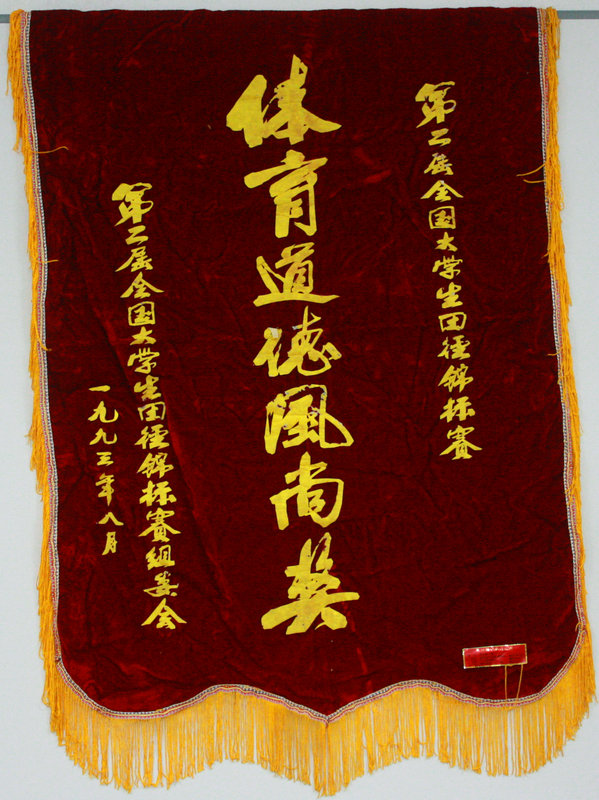 第二届全国大学生田径锦标赛
体育道德风尚奖
第二届全国大学生田径锦标赛组委会
一九九三年八月